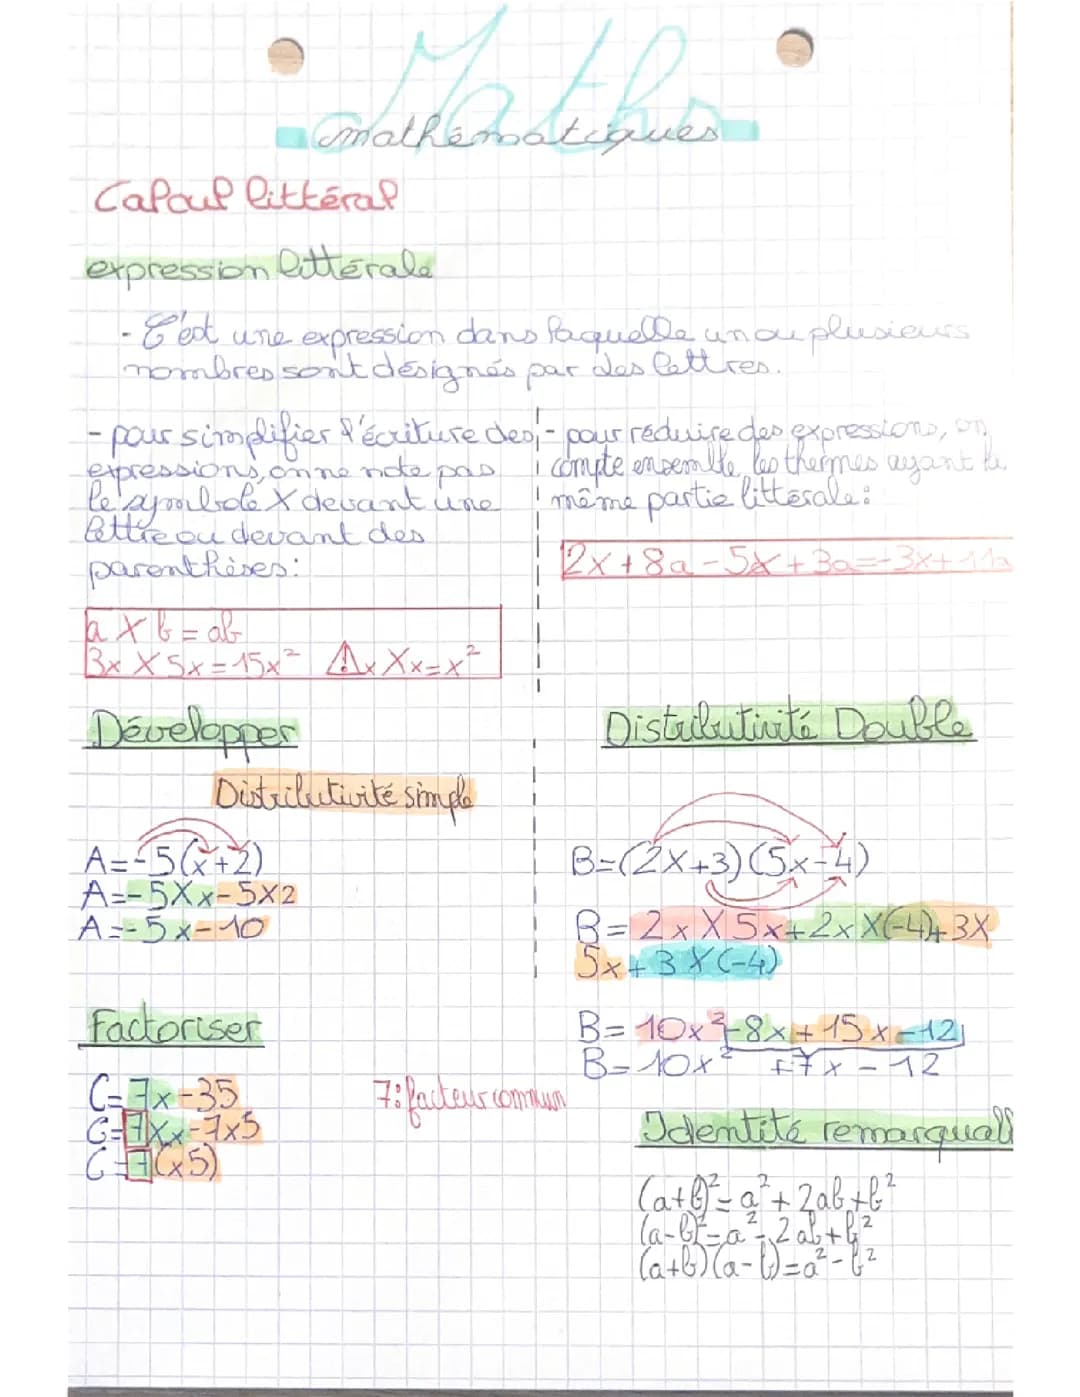 Maths
mathématiques
Calcul littéral
expression littérale
- C'est une expression dans laquelle un ou plusieurs
nombres sont désignés par des lettres.
- pour simplifier l'écriture des
expressions, on ne note pas
le symbole X devant une
lettre ou devant des
parenthèses:
a X b = ab
3x X 5x = 15x² ⚠ x X x = x²
- pour réduire des expressions, on
compte ensemble, les thermes ayant la
même partie littérale:
2x + 8a - 5x + 3a = -3x + 11a
Développer
Distributivité simple
A = -5(x+2)
A = -5 X x - 5 X 2
A = -5x - 10
Distributivité Double
B = (2x+3)(5x-4)
B = 2x X 5x + 2x X (-4) + 3 X
5x + 3 X (-4)
B = 10x² - 8x + 15x - 12
B = 10x² + 7x - 12
Factoriser
C = 7x - 35
C = 7 X x - 7 x 5
C = 7(x 5)
7: facteur commun
Identité remarquabl
(a+b)² = a² + 2ab + b²
(a-b)² = a² - 2ab + b²
(a+b)(a-b) = a² - b²